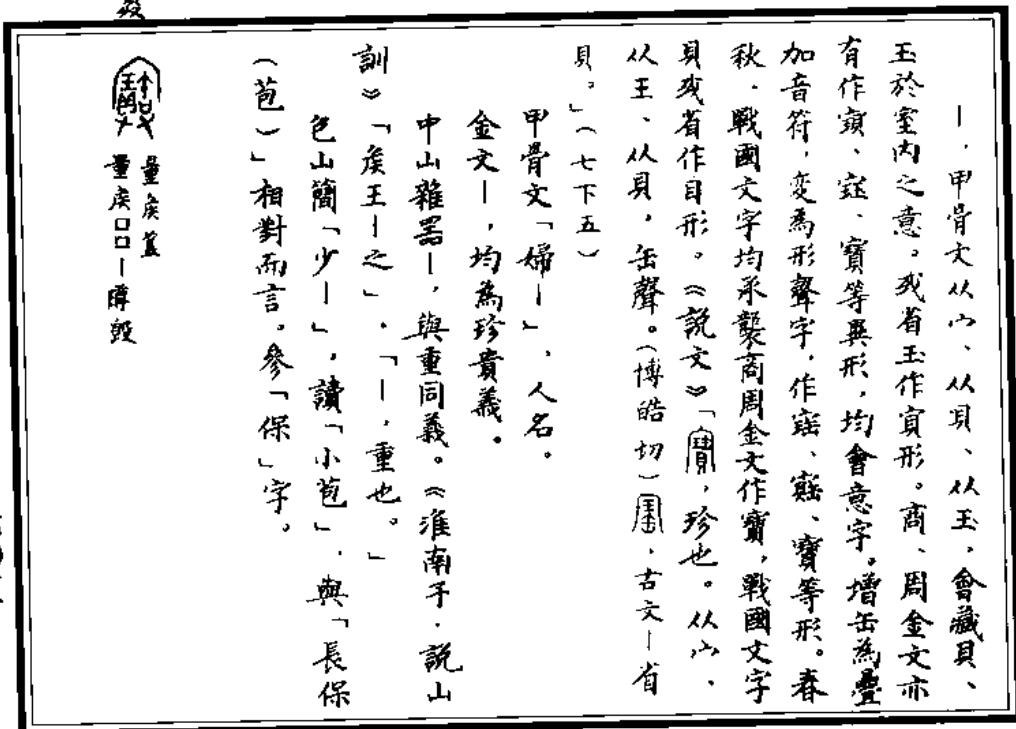 丨，甲骨文从宀、从貝、从玉，會藏貝、
玉於室內之意。或省玉作寊形。商、周金文亦
有作、、寶等異形，均會意字。增缶為疊
加音符，变為形聲字，作、、寶等形。春
秋、戰國文字均承襲商周金文作寶，戰國文字
貝或省作目形。《說文》「寶，珍也。从宀、
从王、从貝，缶聲。（博皓切），古文丨省
貝。」（七下五）
甲骨文「婦丨」，人名。
金文丨，均為珍貴義。
中山雜器丨，與重同義。《淮南子·說山
訓》「矦王丨之」，「丨，重也。」
包山簡「少丨」，讀「小苞」，與「長保
（苞）」相對而言。參「保」字。
量矦簋
量矦口口丨䵼毀